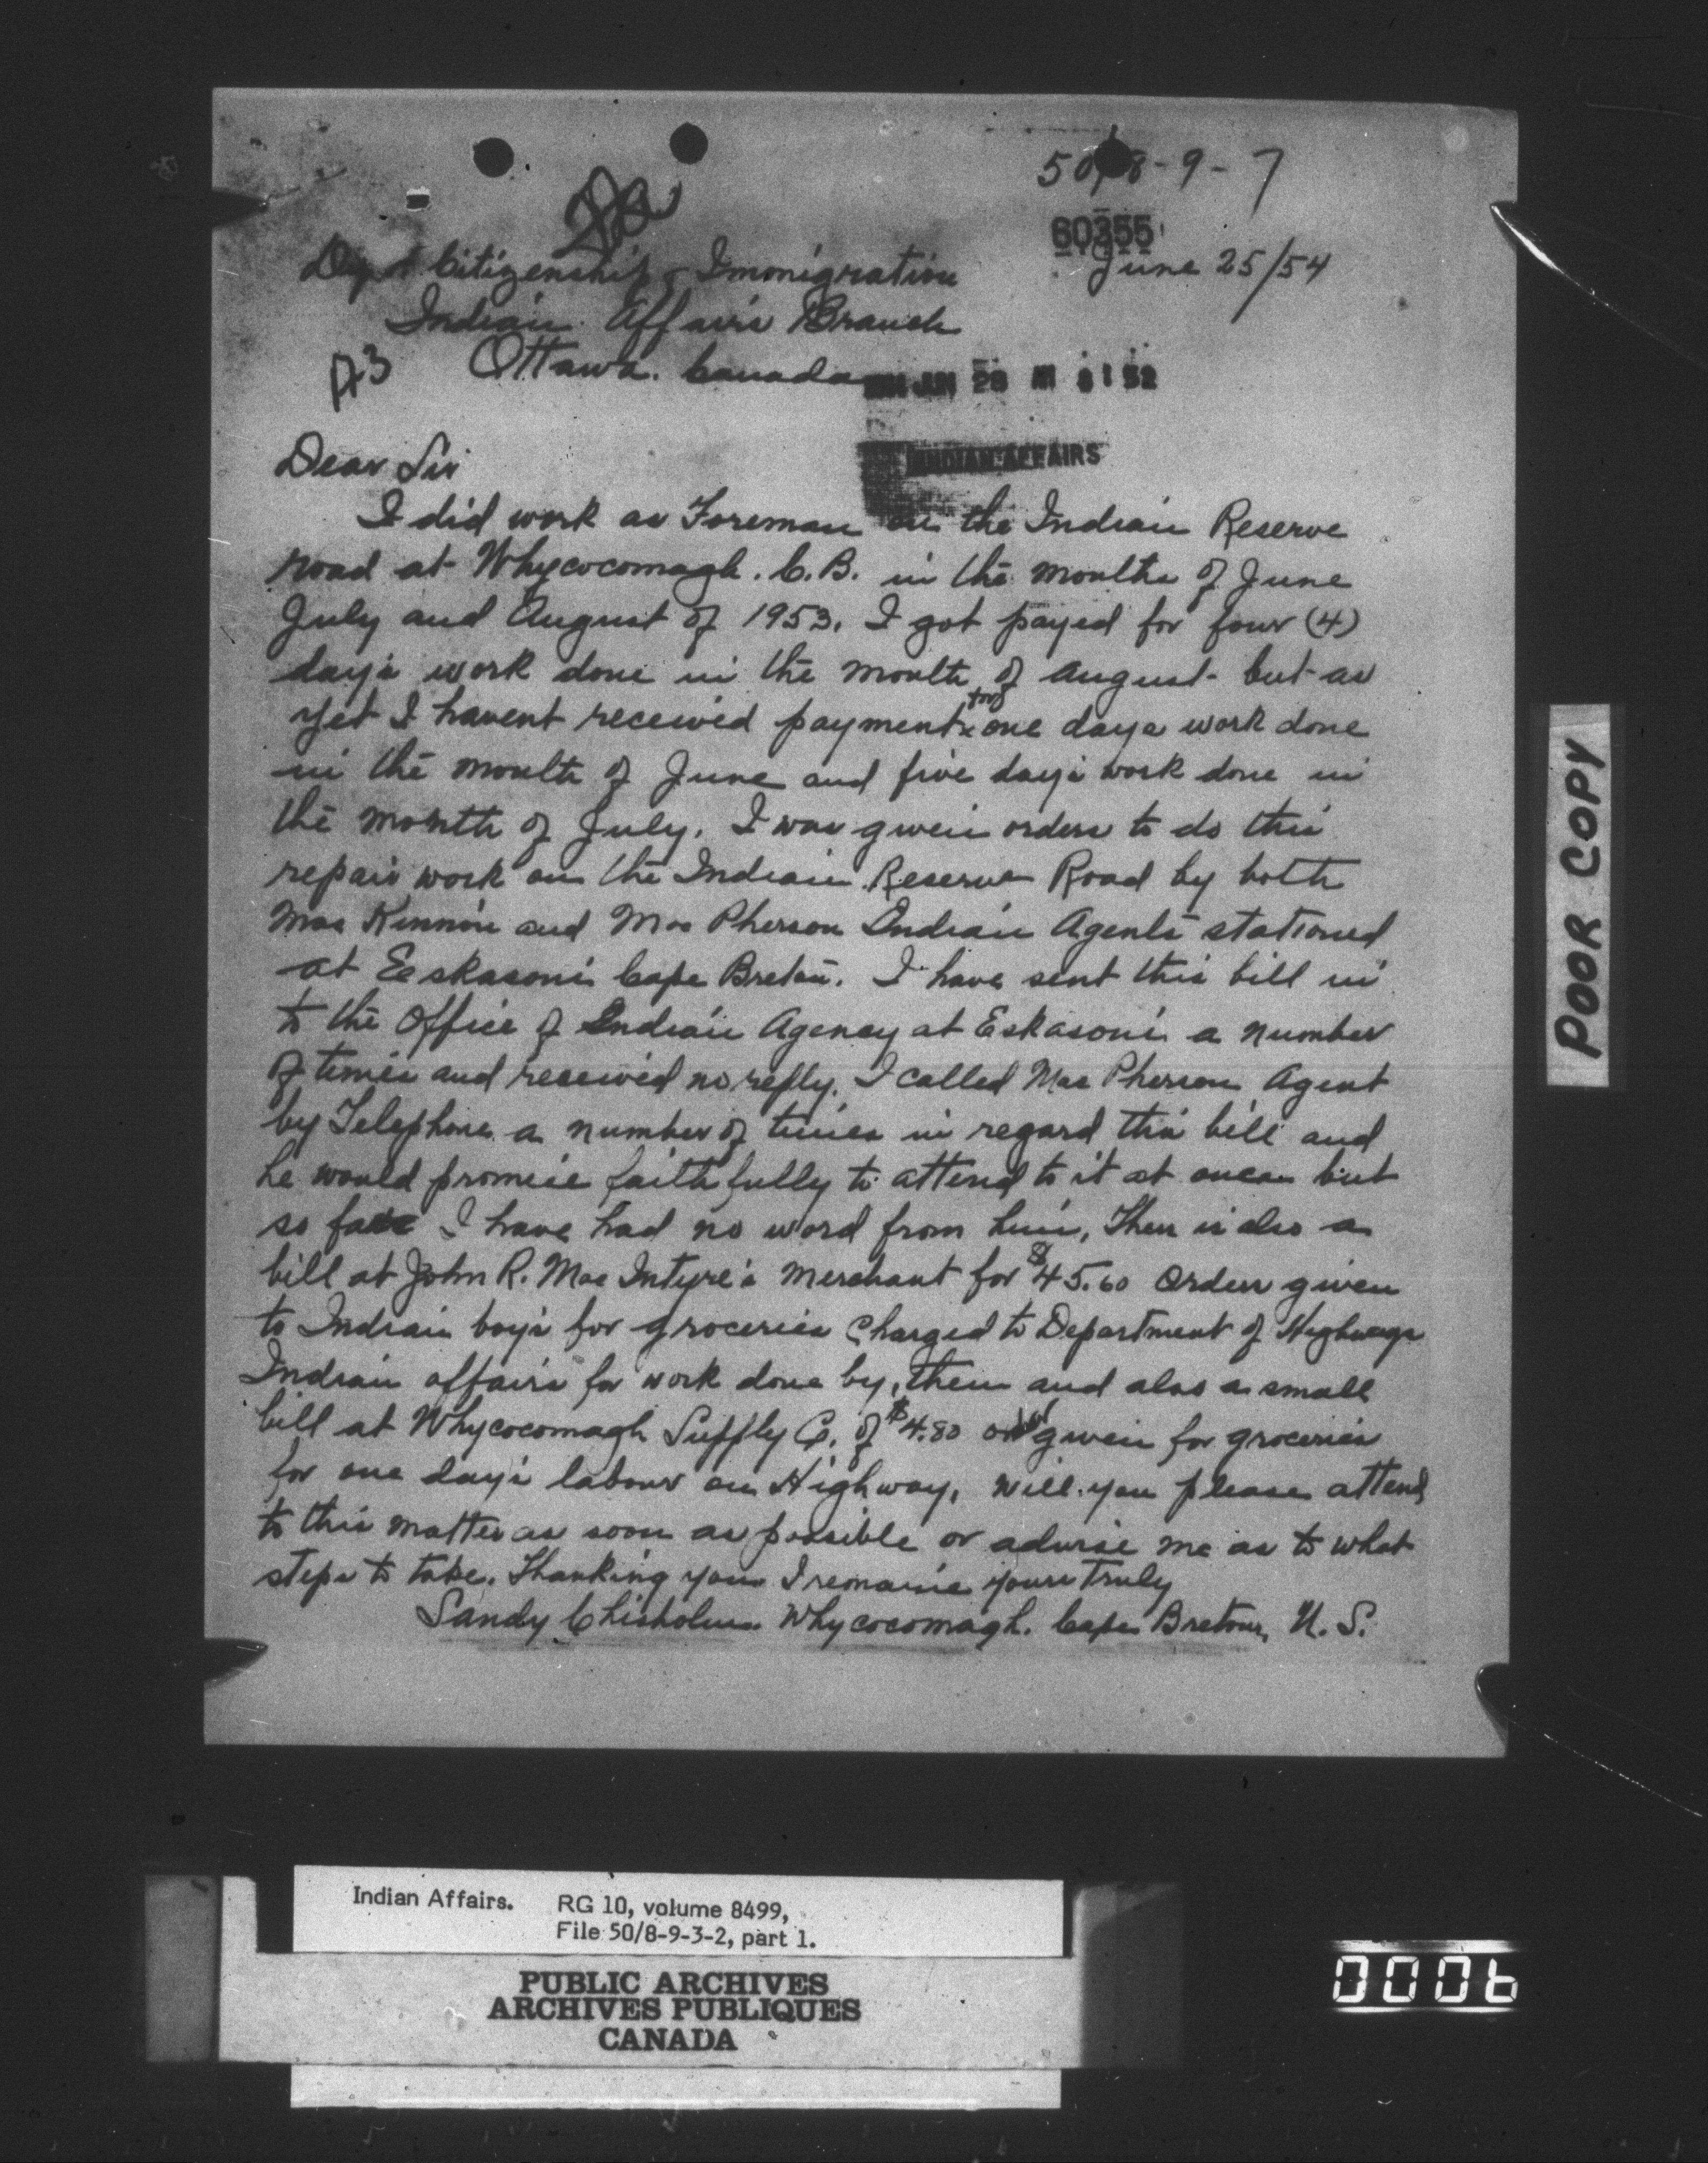 50/8-9-7
60355
June 25/54
Dept Citizenship & Immigration
Indian Affairs Branch
Ottawa. Canada
A3
INDIAN AFFAIRS
Dear Sir
I did work as Foreman on the Indian Reserve
road at Whycocomagh. C.B. in the months of June
July and August of 1953. I got payed for four (4)
day's work done in the month of August but as
yet I havent received payment for one days work done
in the month of June and five day's work done in
the month of July. I was given orders to do this
repair work on the Indian Reserve Road by both
Mac Kinnon and Mac Pherson Indian Agents stationed
at Eskasoni Cape Breton. I have sent this bill in
to the Office of Indian Agency at Eskasoni a number
of times and received no reply. I called Mac Pherson Agent
by Telephone a number of times in regard this bill and
he would promise faithfully to attend to it at once but
so far I have had no word from him, There is also a
bill at John R. Mac Intyre's Merchant for $45.60 Orders given
to Indian boys for groceries Charged to Department of Highways
Indian affairs for work done by them and also a small
bill at Whycocomagh Supply Co. of $4.80 order given for groceries
for one day's labour on Highway, will you please attend
to this matter as soon as possible or advise me as to what
steps to take. Thanking you I remain yours Truly
Sandy Chisholm Whycocomagh. Cape Breton, N.S.
POOR COPY
Indian Affairs. RG 10, volume 8499,
File 50/8-9-3-2, part 1.
PUBLIC ARCHIVES
ARCHIVES PUBLIQUES
CANADA
0006